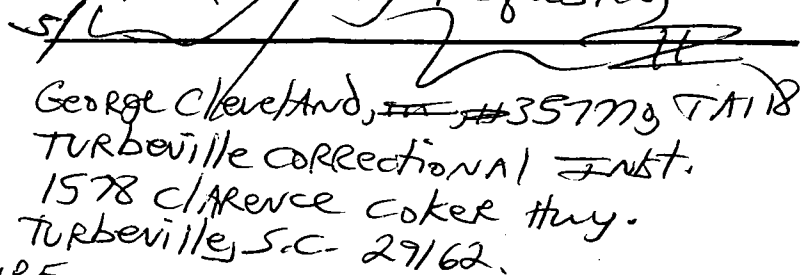 s/
George Cleveland, III, #357779 TA118
Turbeville Correctional Inst.
1578 Clarence Coker Hwy.
Turbeville, S.C. 29162.